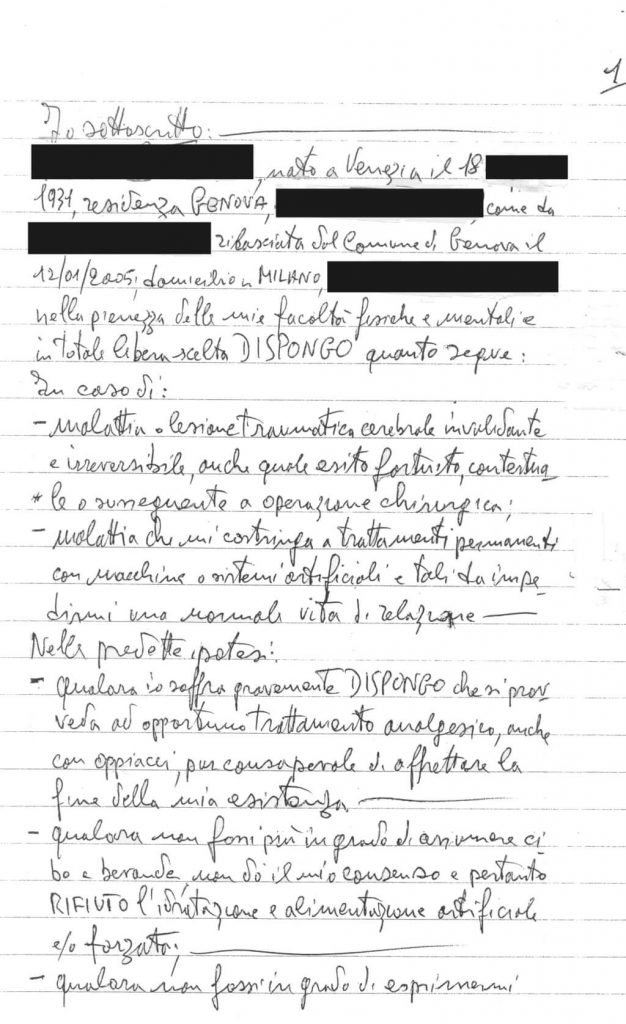 1
Io sottoscritto:
, nato a Venezia il 18
1931, residenza GENOVA, come da
rilasciata dal Comune di Genova il
12/01/2005, domicilio in MILANO,
nella pienezza delle mie facoltà fisiche e mentali e
in totale libera scelta DISPONGO quanto segue:
In caso di:
- malattia o lesione traumatica cerebrale invalidante
e irreversibile, anche quale esito fortuito, contestua
* le o susseguente a operazione chirurgica;
- malattia che mi costringa a trattamenti permanenti
con macchine o sistemi artificiali e tali da impe
dirmi una normale vita di relazione
Nelle predette ipotesi:
- qualora io soffra gravemente DISPONGO che si prov
veda ad opportuno trattamento analgesico, anche
con oppiacei, pur consapevole di affrettare la
fine della mia esistenza
- qualora non fossi più in grado di assumere ci
bo e bevande non dò il mio consenso e pertanto
RIFIUTO l'idratazione e alimentazione artificiale
e/o forzata;
- qualora non fossi in grado di esprimermi